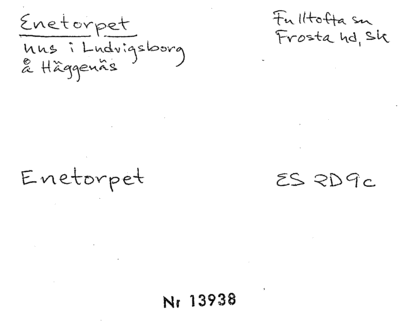 Enetorpet
hus i Ludvigsborg
å Häggenäs
Fulltofta sn
Frosta hd, Sk
Enetorpet
ES 2D9c
Nr 13938